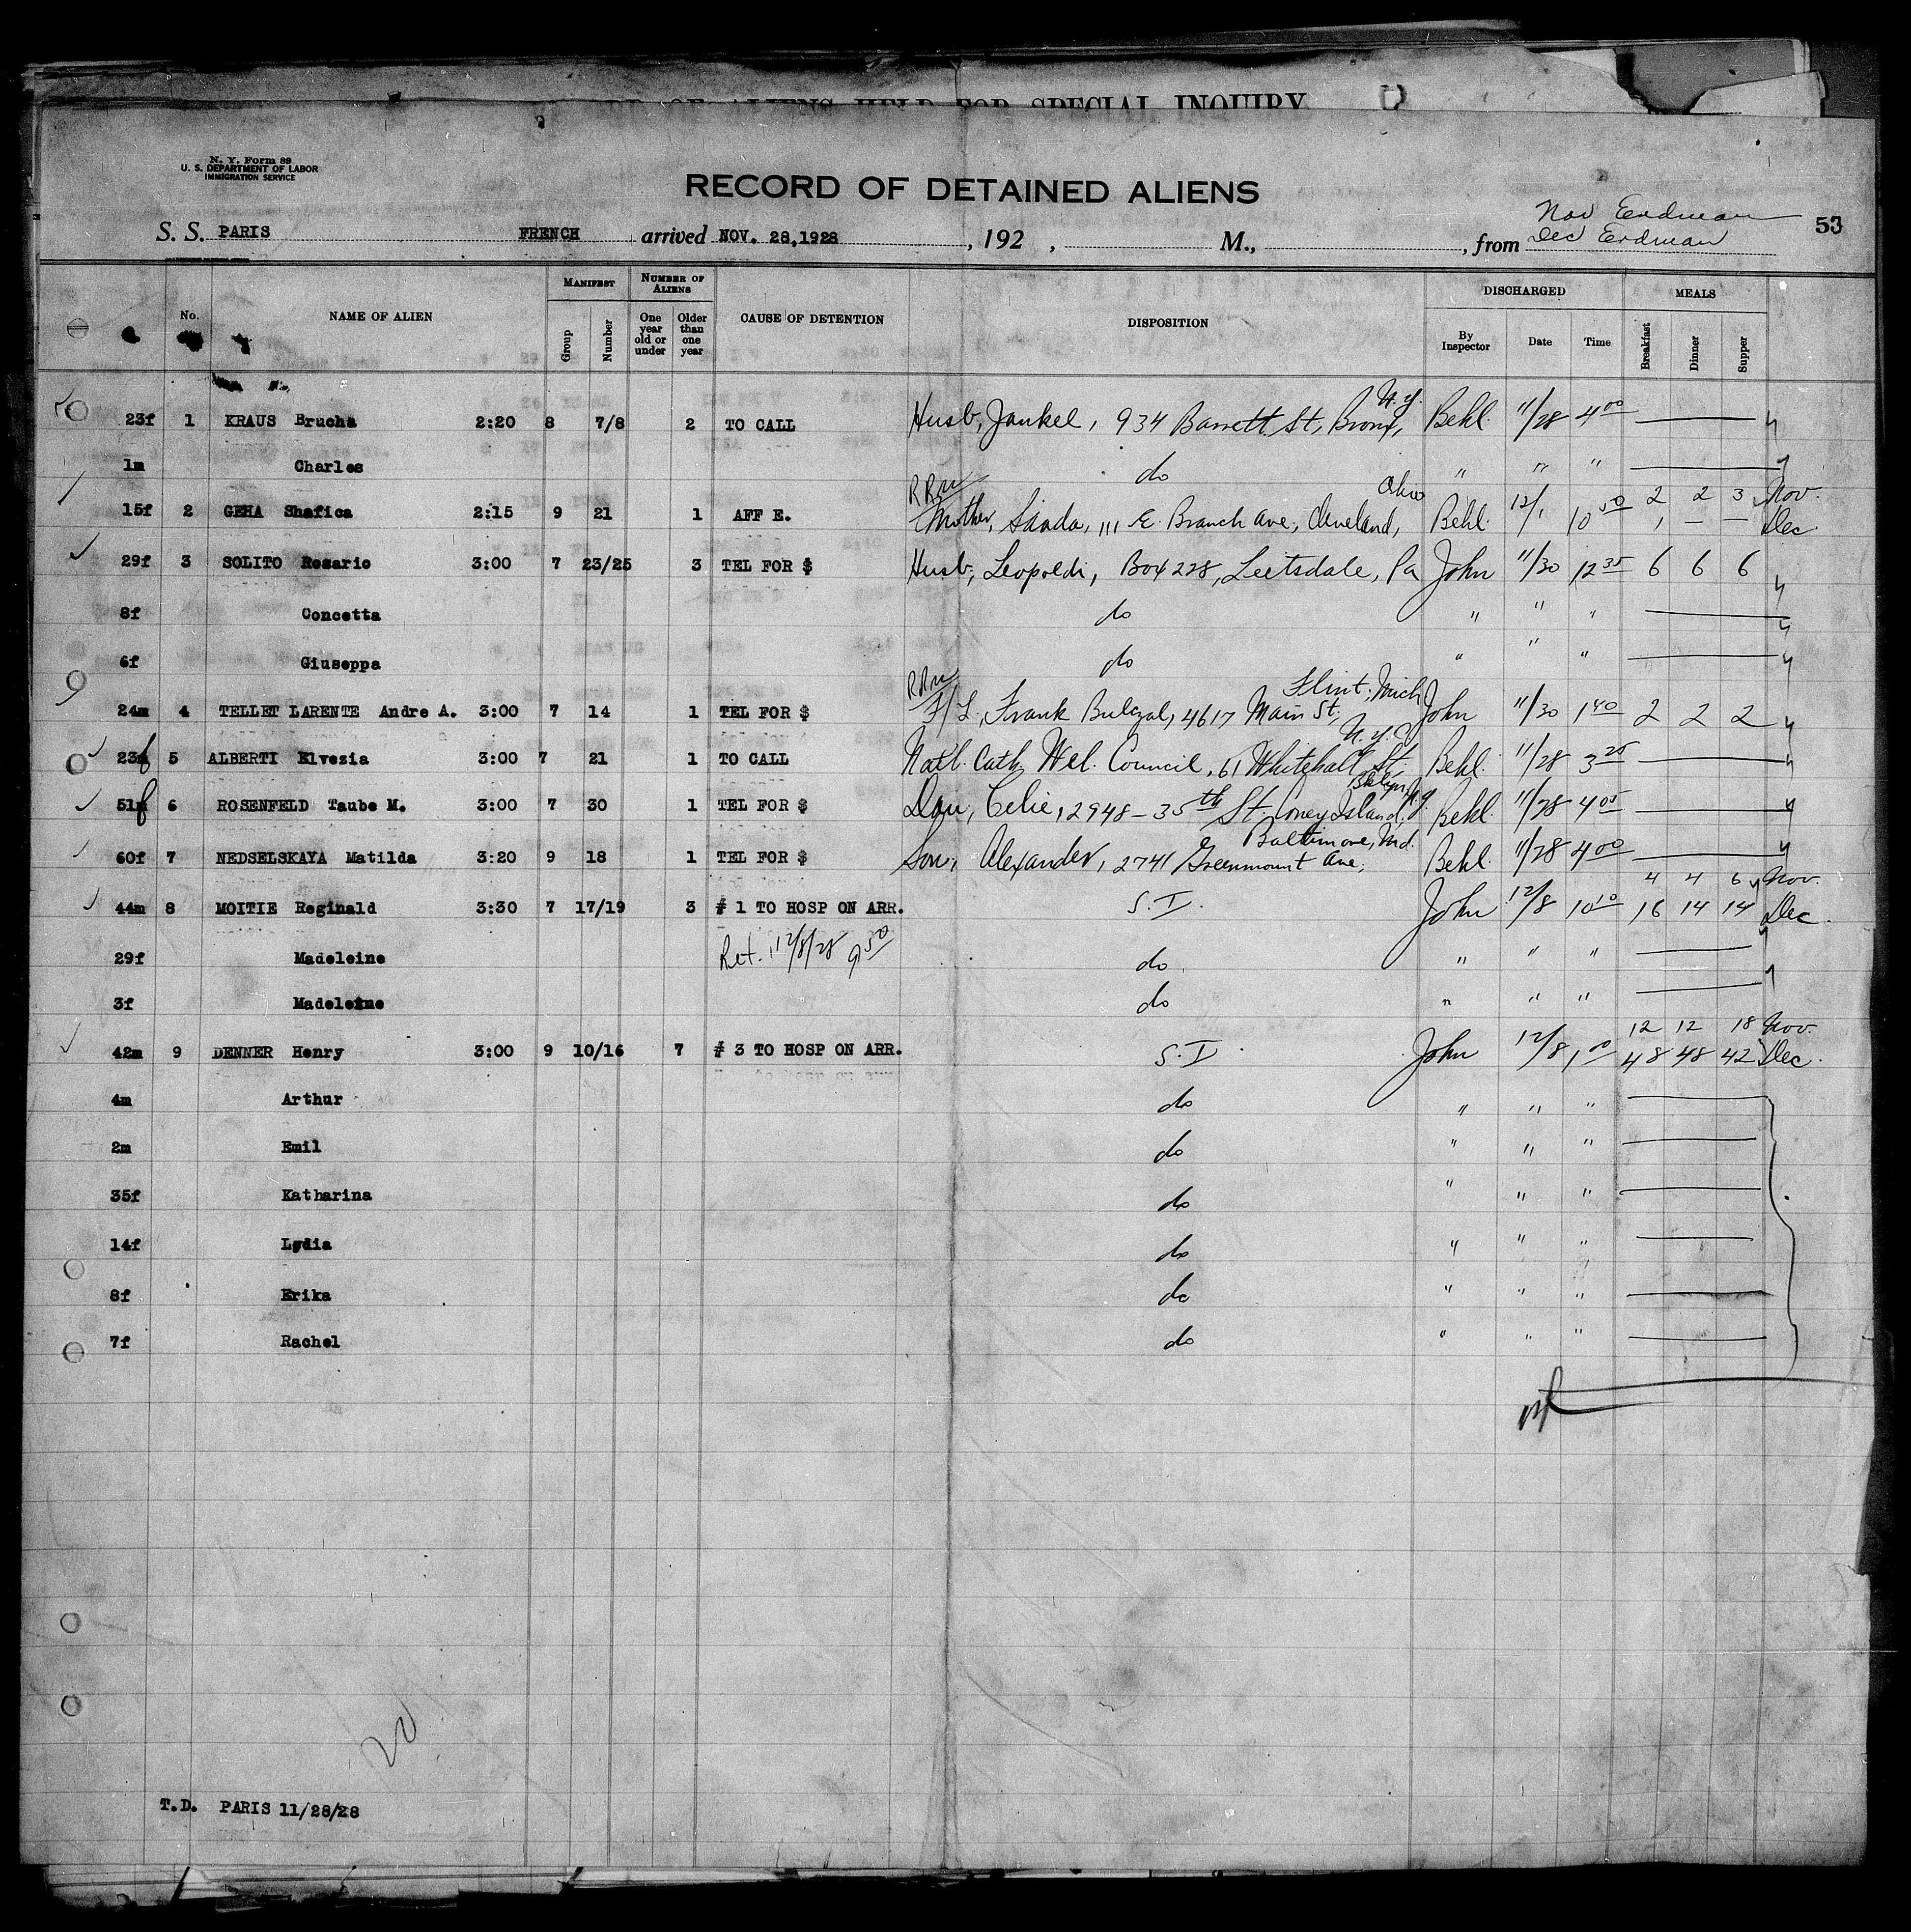 SPECIAL INQUIRY
N. Y. Form 89
U. S. DEPARTMENT OF LABOR
IMMIGRATION SERVICE
RECORD OF DETAINED ALIENS
Nov Erdman
S. S. PARIS FRENCH arrived NOV. 28,1928 , 192 , M., , from Dec Erdman 53
No. NAME OF ALIEN MANIFEST Group Number NUMBER OF ALIENS One year old or under Older than one year CAUSE OF DETENTION DISPOSITION DISCHARGED By Inspector Date Time MEALS Breakfast Dinner Supper
23f 1 KRAUS Brucha 2:20 8 7/8 2 TO CALL Husb, Jankel, 934 Barrett St, Bronx, N.Y. Behl. 11/28 4 00
1m Charles do " " "
15f 2 GEHA Shafica 2:15 9 21 1 AFF E. Mother, Saada, 111 E. Branch Ave, Cleveland, Ohio Behl. 12/1 10 50 2 2 3 Nov.
1 — — Dec
29f 3 SOLITO Rosario 3:00 7 23/25 3 TEL FOR $ Husb, Leopoldi, Box 228, Leetsdale, Pa John 11/30 12 35 6 6 6
8f Concetta do " " "
6f Giuseppa do " " "
24m 4 TELLET LARENTE Andre A. 3:00 7 14 1 TEL FOR $ Frank Bulezal, 4617 Main St, Flint, Mich John 11/30 1 40 2 2 2
23f 5 ALBERTI Elvezia 3:00 7 21 1 TO CALL Natl. Cath. Wel. Council, 61 Whitehall St. N.Y.C. Behl. 11/28 3 25
51f 6 ROSENFELD Taube M. 3:00 7 30 1 TEL FOR $ Dau, Celie, 2948 - 35th St. Coney Island, Bklyn, N.Y. Behl. 11/28 4 05
60f 7 NEDSELSKAYA Matilda 3:20 9 18 1 TEL FOR $ Son, Alexander, 2741 Greenmount Ave, Baltimore, Md. Behl. 11/28 4 00
4 4 6 Nov.
44m 8 MOITIE Reginald 3:30 7 17/19 3 # 1 TO HOSP ON ARR. S.I. John 12/8 10 10 16 14 14 Dec.
29f Madeleine Ret. 12/8/28 9 50 do " " "
3f Madeleine do " " "
12 12 18 Nov.
42m 9 DENNER Henry 3:00 9 10/16 7 # 3 TO HOSP ON ARR. S.I. John 12/8 1 00 48 48 42 Dec.
4m Arthur do " " "
2m Emil do " " "
35f Katharina do " " "
14f Lydia do " " "
8f Erika do " " "
7f Rachel do " " "
20
T.D. PARIS 11/28/28